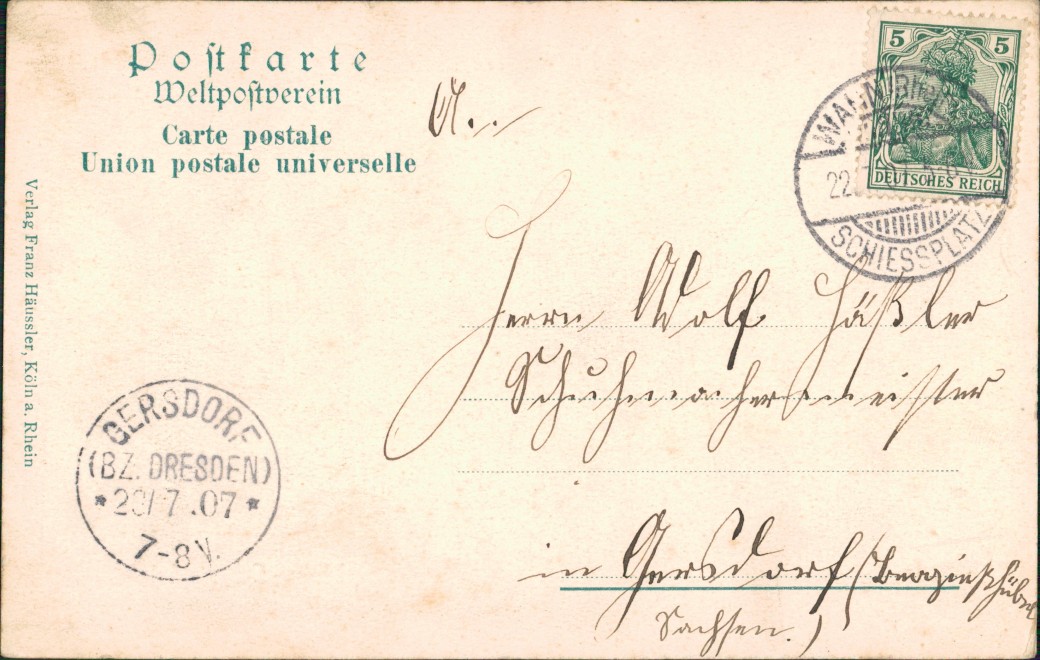 Postkarte
Weltpostverein
Carte postale
Union postale universelle
Verlag Franz Häussler, Köln a. Rhein
5 5
DEUTSCHES REICH
WAHN
22.
SCHIESSPLATZ
A..
Herrn Wolf Häßler
Schuhmachermeister
in Gersdorf
Sachsen.)
GERSDORF
(BZ. DRESDEN)
* 23/7.07 *
7-8V.